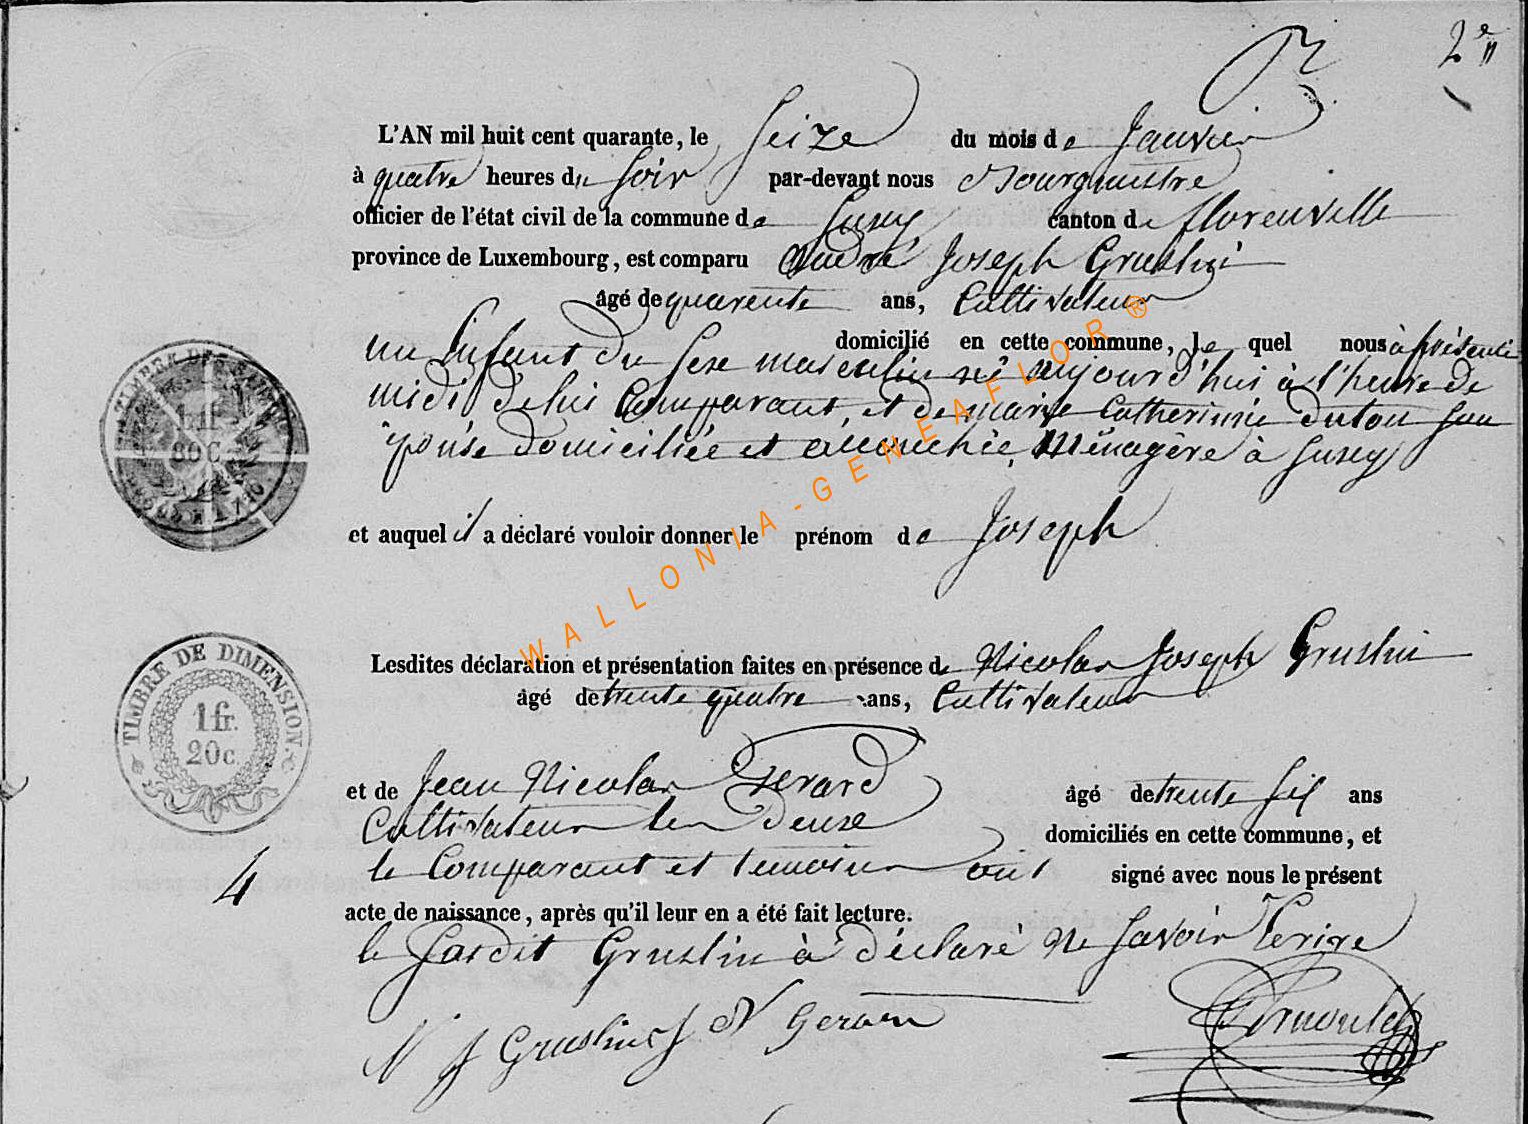 2e
L'AN mil huit cent quarante, le Seize du mois de Janvier
à quatre heures du Soir par-devant nous Bourgmestre
officier de l'état civil de la commune de Suxy canton de florenville
province de Luxembourg, est comparu André Joseph Gruslin
âgé de quarente ans, Cultivateur
domicilié en cette commune, le quel nous à présenté
un Enfant du Sexe masculin né aujourd'hui à l'heure de
midi de lui Comparant, et de marie Catherinne duton Son
épouse domiciliée et accouchée, Ménagère à Suxy
et auquel il a déclaré vouloir donner le prénom de Joseph
WALLONIA-GENEAFLOR®
Lesdites déclaration et présentation faites en présence de Nicolas Joseph Gruslin
âgé de trente quatre ans, Cultivateur
et de Jean Nicolas Gerard âgé de trente Six ans
Cultivateur les Deux domiciliés en cette commune, et
le Comparant et temoins ont signé avec nous le présent
acte de naissance, après qu'il leur en a été fait lecture.
le Sasdit Gruslin à déclaré Ne Savoir Ecrire
N J Gruslin J N Gerard
TIMBRE DE DIMENSION.
1 fr.
20 c.
4